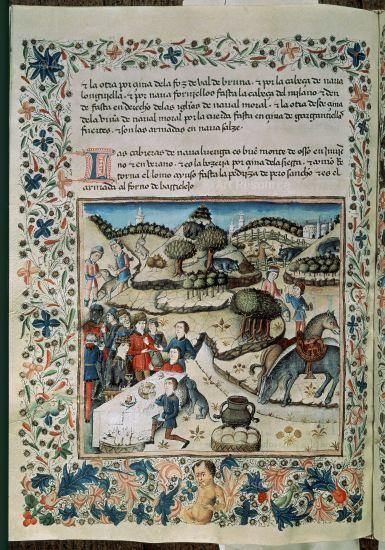 ⁊ la otra por çima dela foz de val de bruna · ⁊ por la cabeça de naua
longuylla · ⁊ por naua fornyellos fasta la cabeça del mylano · ⁊ den
de fasta en derecho delas iglias de naual moral · ⁊ la otra desde çima
dela de naual moral por la queda fasta en çima de
fuertes · ⁊ son las armadas en naua
Las cabreras de naualuenga es buē monte de osso en inuier
no ⁊ en verano · ⁊ es la bozeria por çima dela sierra · ⁊
torna el lomo ayuso fasta la pedriza de pero sancho · ⁊ es el
armada al forno de